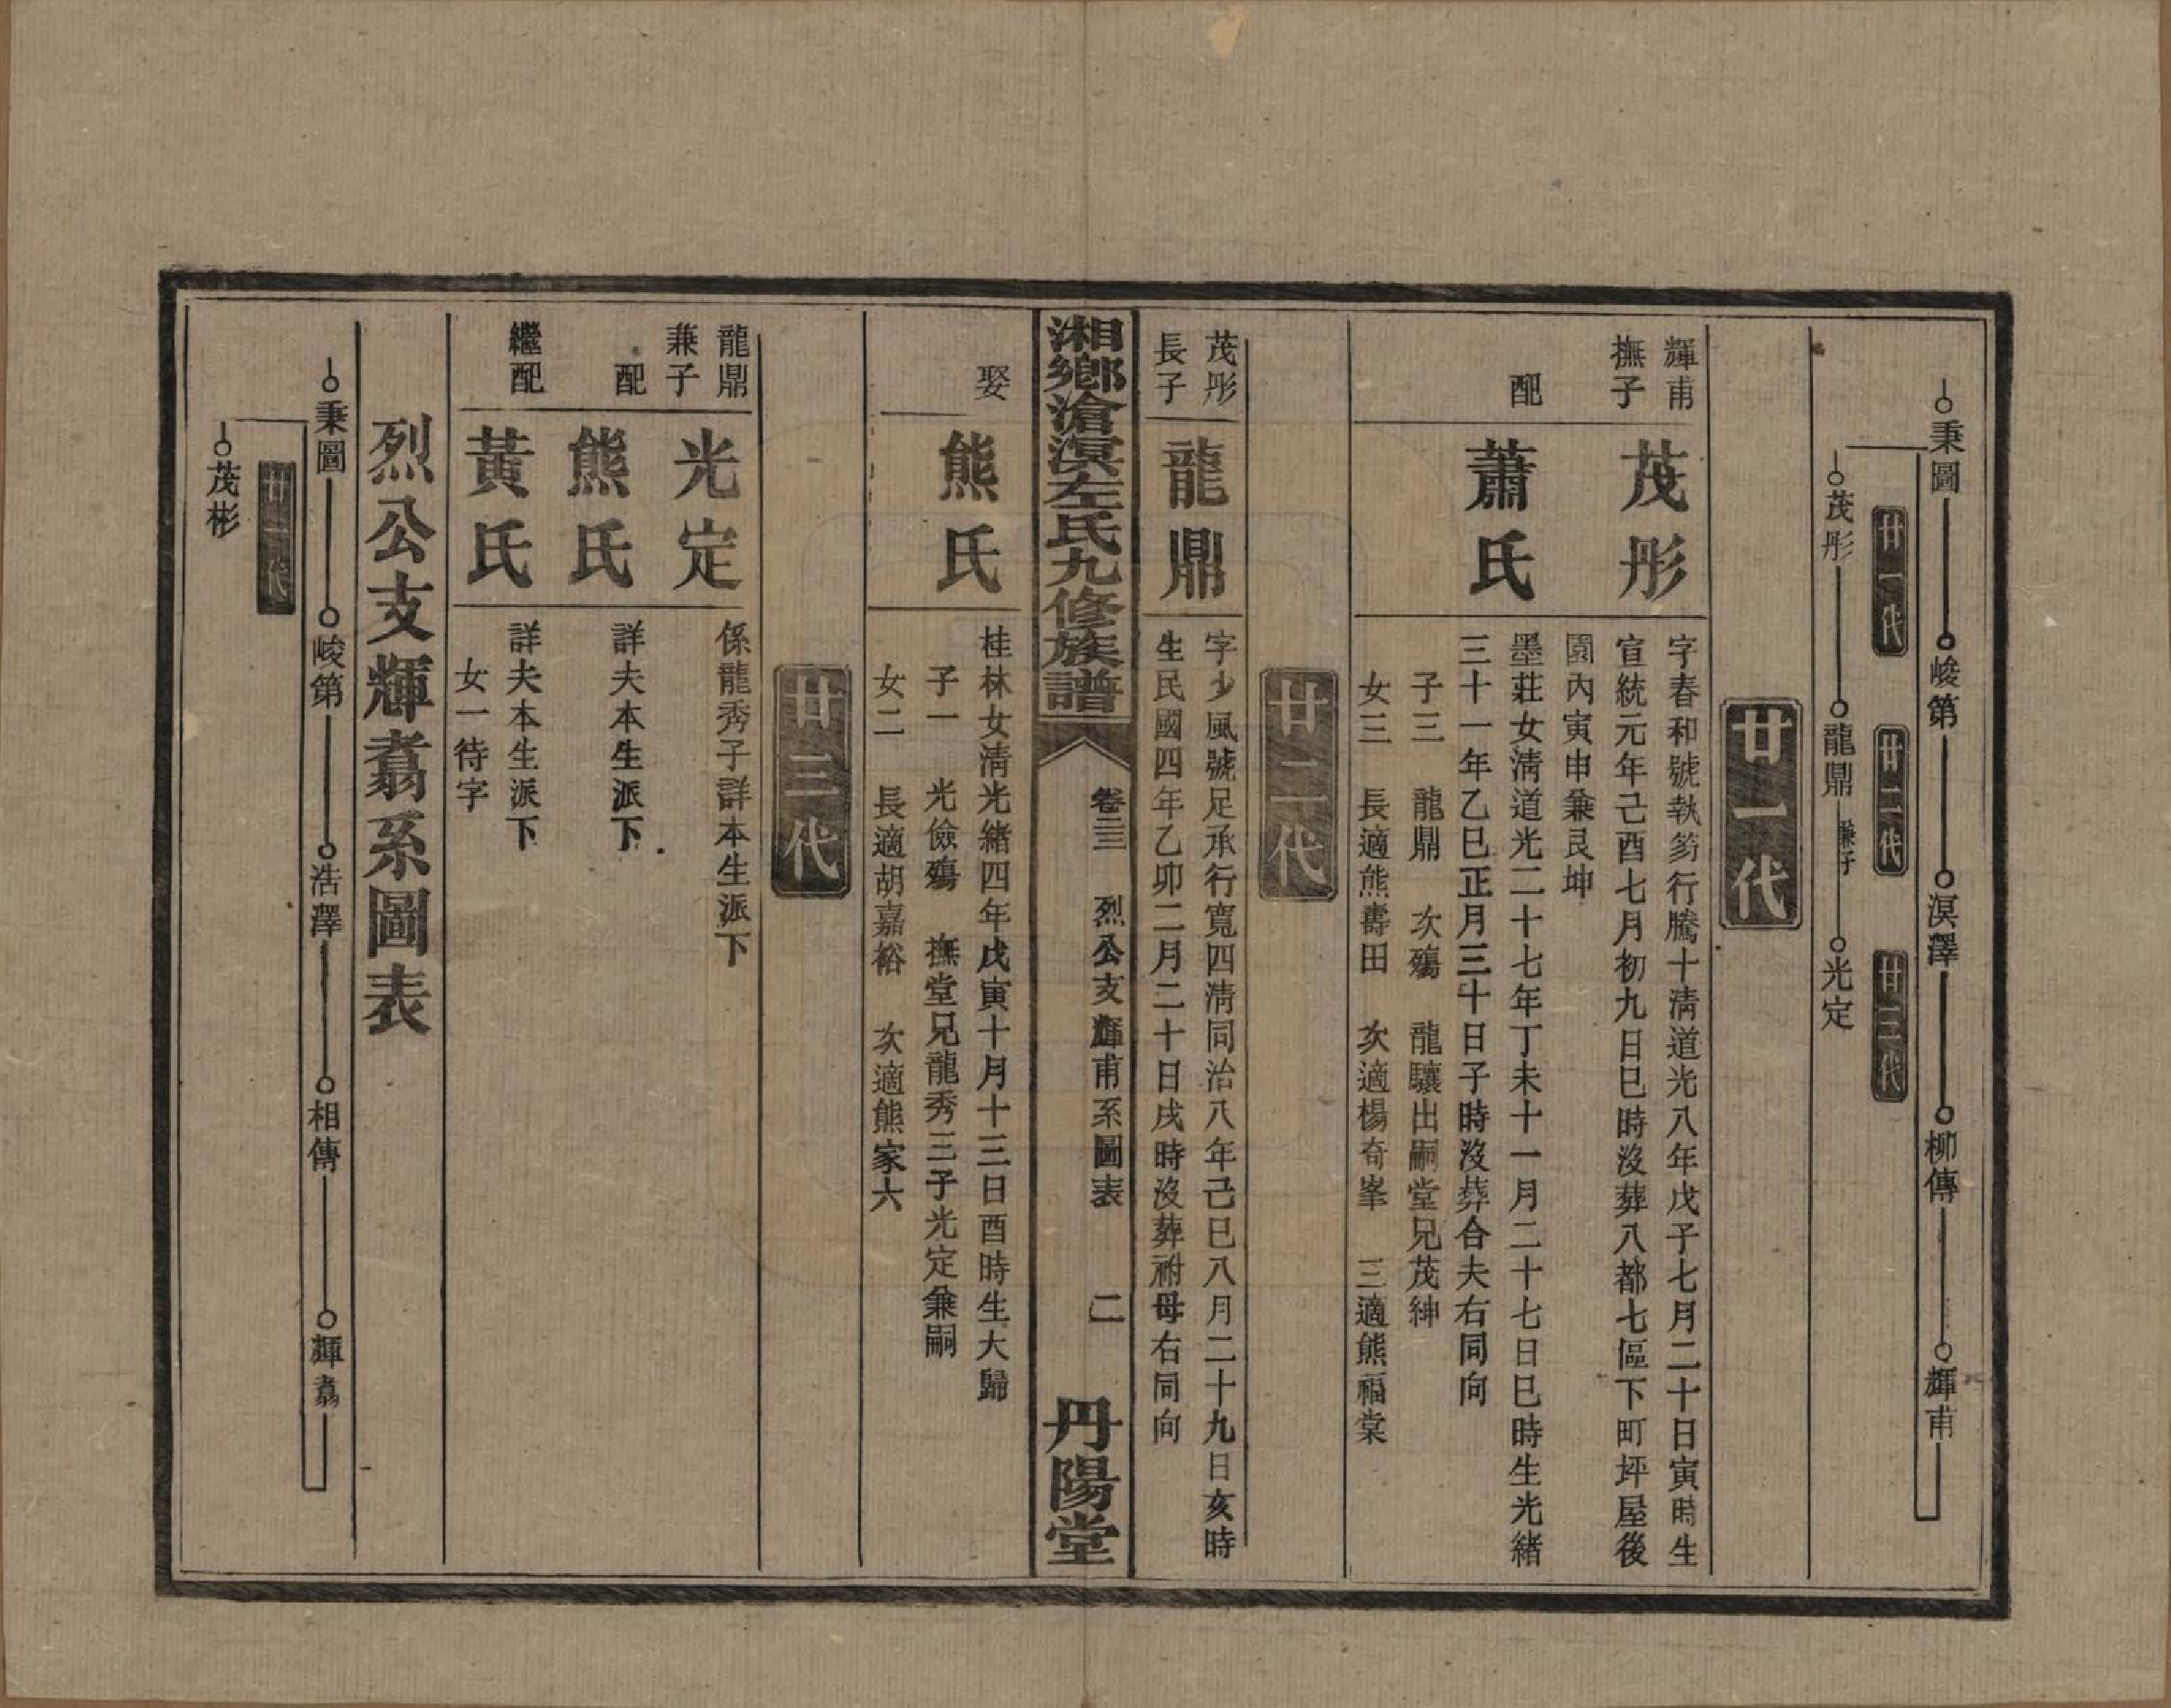 秉圖　峻第　溟澤　柳傳　輝甫
廿一代　廿二代　廿三代
茂彤　龍鼎　兼子　光定
廿一代
輝甫撫子　茂彤　字春和號執笏行騰十清道光八年戊子七月二十日寅時生
宣統元年己酉七月初九日巳時沒葬八都七區下町坪屋後
園內寅申兼艮坤
配　蕭氏　墨莊女清道光二十七年丁未十一月二十七日巳時生光緒
三十一年乙巳正月三十日子時沒葬合夫右同向
子三　龍鼎　次殤　龍驤出嗣堂兄茂紳
女三　長適熊壽田　次適楊奇峯　三適熊福棠
廿二代
茂彤長子　龍鼎　字少風號足承行寬四清同治八年己巳八月二十九日亥時
生民國四年乙卯二月二十日戌時沒葬祔母右同向
湘鄉滄溟左氏九修族譜　卷三三　烈公支輝甫系圖表　二　丹陽堂
娶　熊氏　桂林女清光緒四年戊寅十月十三日酉時生大歸
子一　光儉殤　撫堂兄龍秀三子光定兼嗣
女二　長適胡嘉裕　次適熊家六
廿三代
龍鼎兼子　光定　係龍秀子詳本生派下
配　熊氏　詳夫本生派下
繼配　黃氏　詳夫本生派下
女一待字
烈公支輝翥系圖表
秉圖　峻第　浩澤　相傳　輝翥
廿一代
茂彬